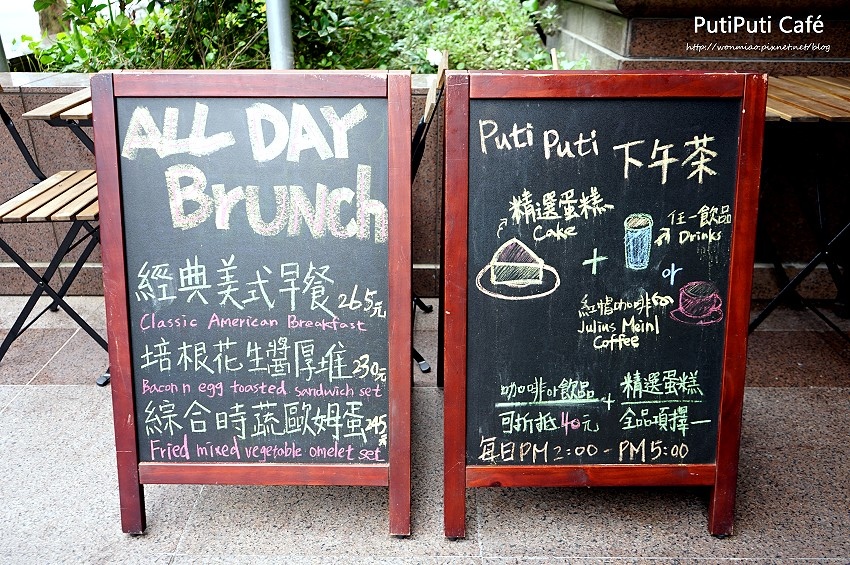 PutiPuti Café
http://wonmiao.pixnet.net/blog
ALL DAY
Brunch
經典美式早餐 265元
Classic American Breakfast
培根花生醬厚堆 230元
Bacon n egg toasted sandwich set
綜合時蔬歐姆蛋 245元
Fried mixed vegetable omelet set
Puti Puti 下午茶
精選蛋糕
Cake
+
任一飲品
Drinks
or
紅帽咖啡
Julius Meinl
Coffee
咖啡or飲品 + 精選蛋糕
可折抵40元 全品項擇一
每日PM 2:00 - PM 5:00